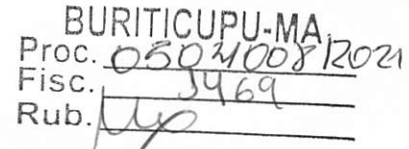 BURITICUPU-MA
Proc. 0504008/2021
Fisc. 3469
Rub.